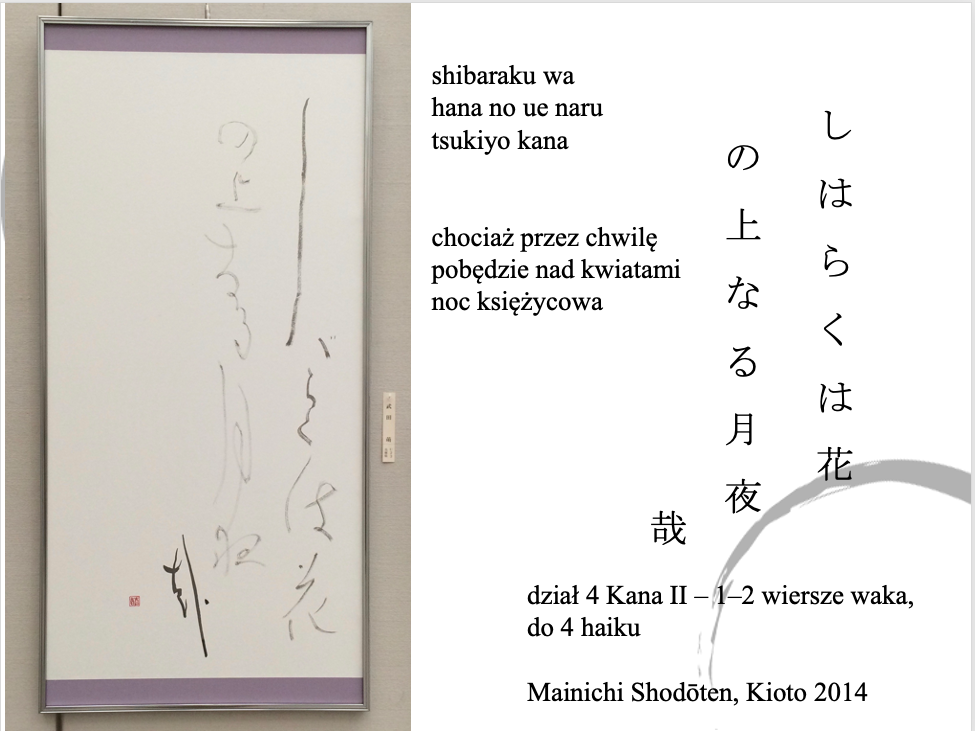 shibaraku wa
hana no ue naru
tsukiyo kana
chociaż przez chwilę
pobędzie nad kwiatami
noc księżycowa
しはらくは花
の上なる月夜
哉
dział 4 Kana II – 1–2 wiersze waka,
do 4 haiku
Mainichi Shodōten, Kioto 2014